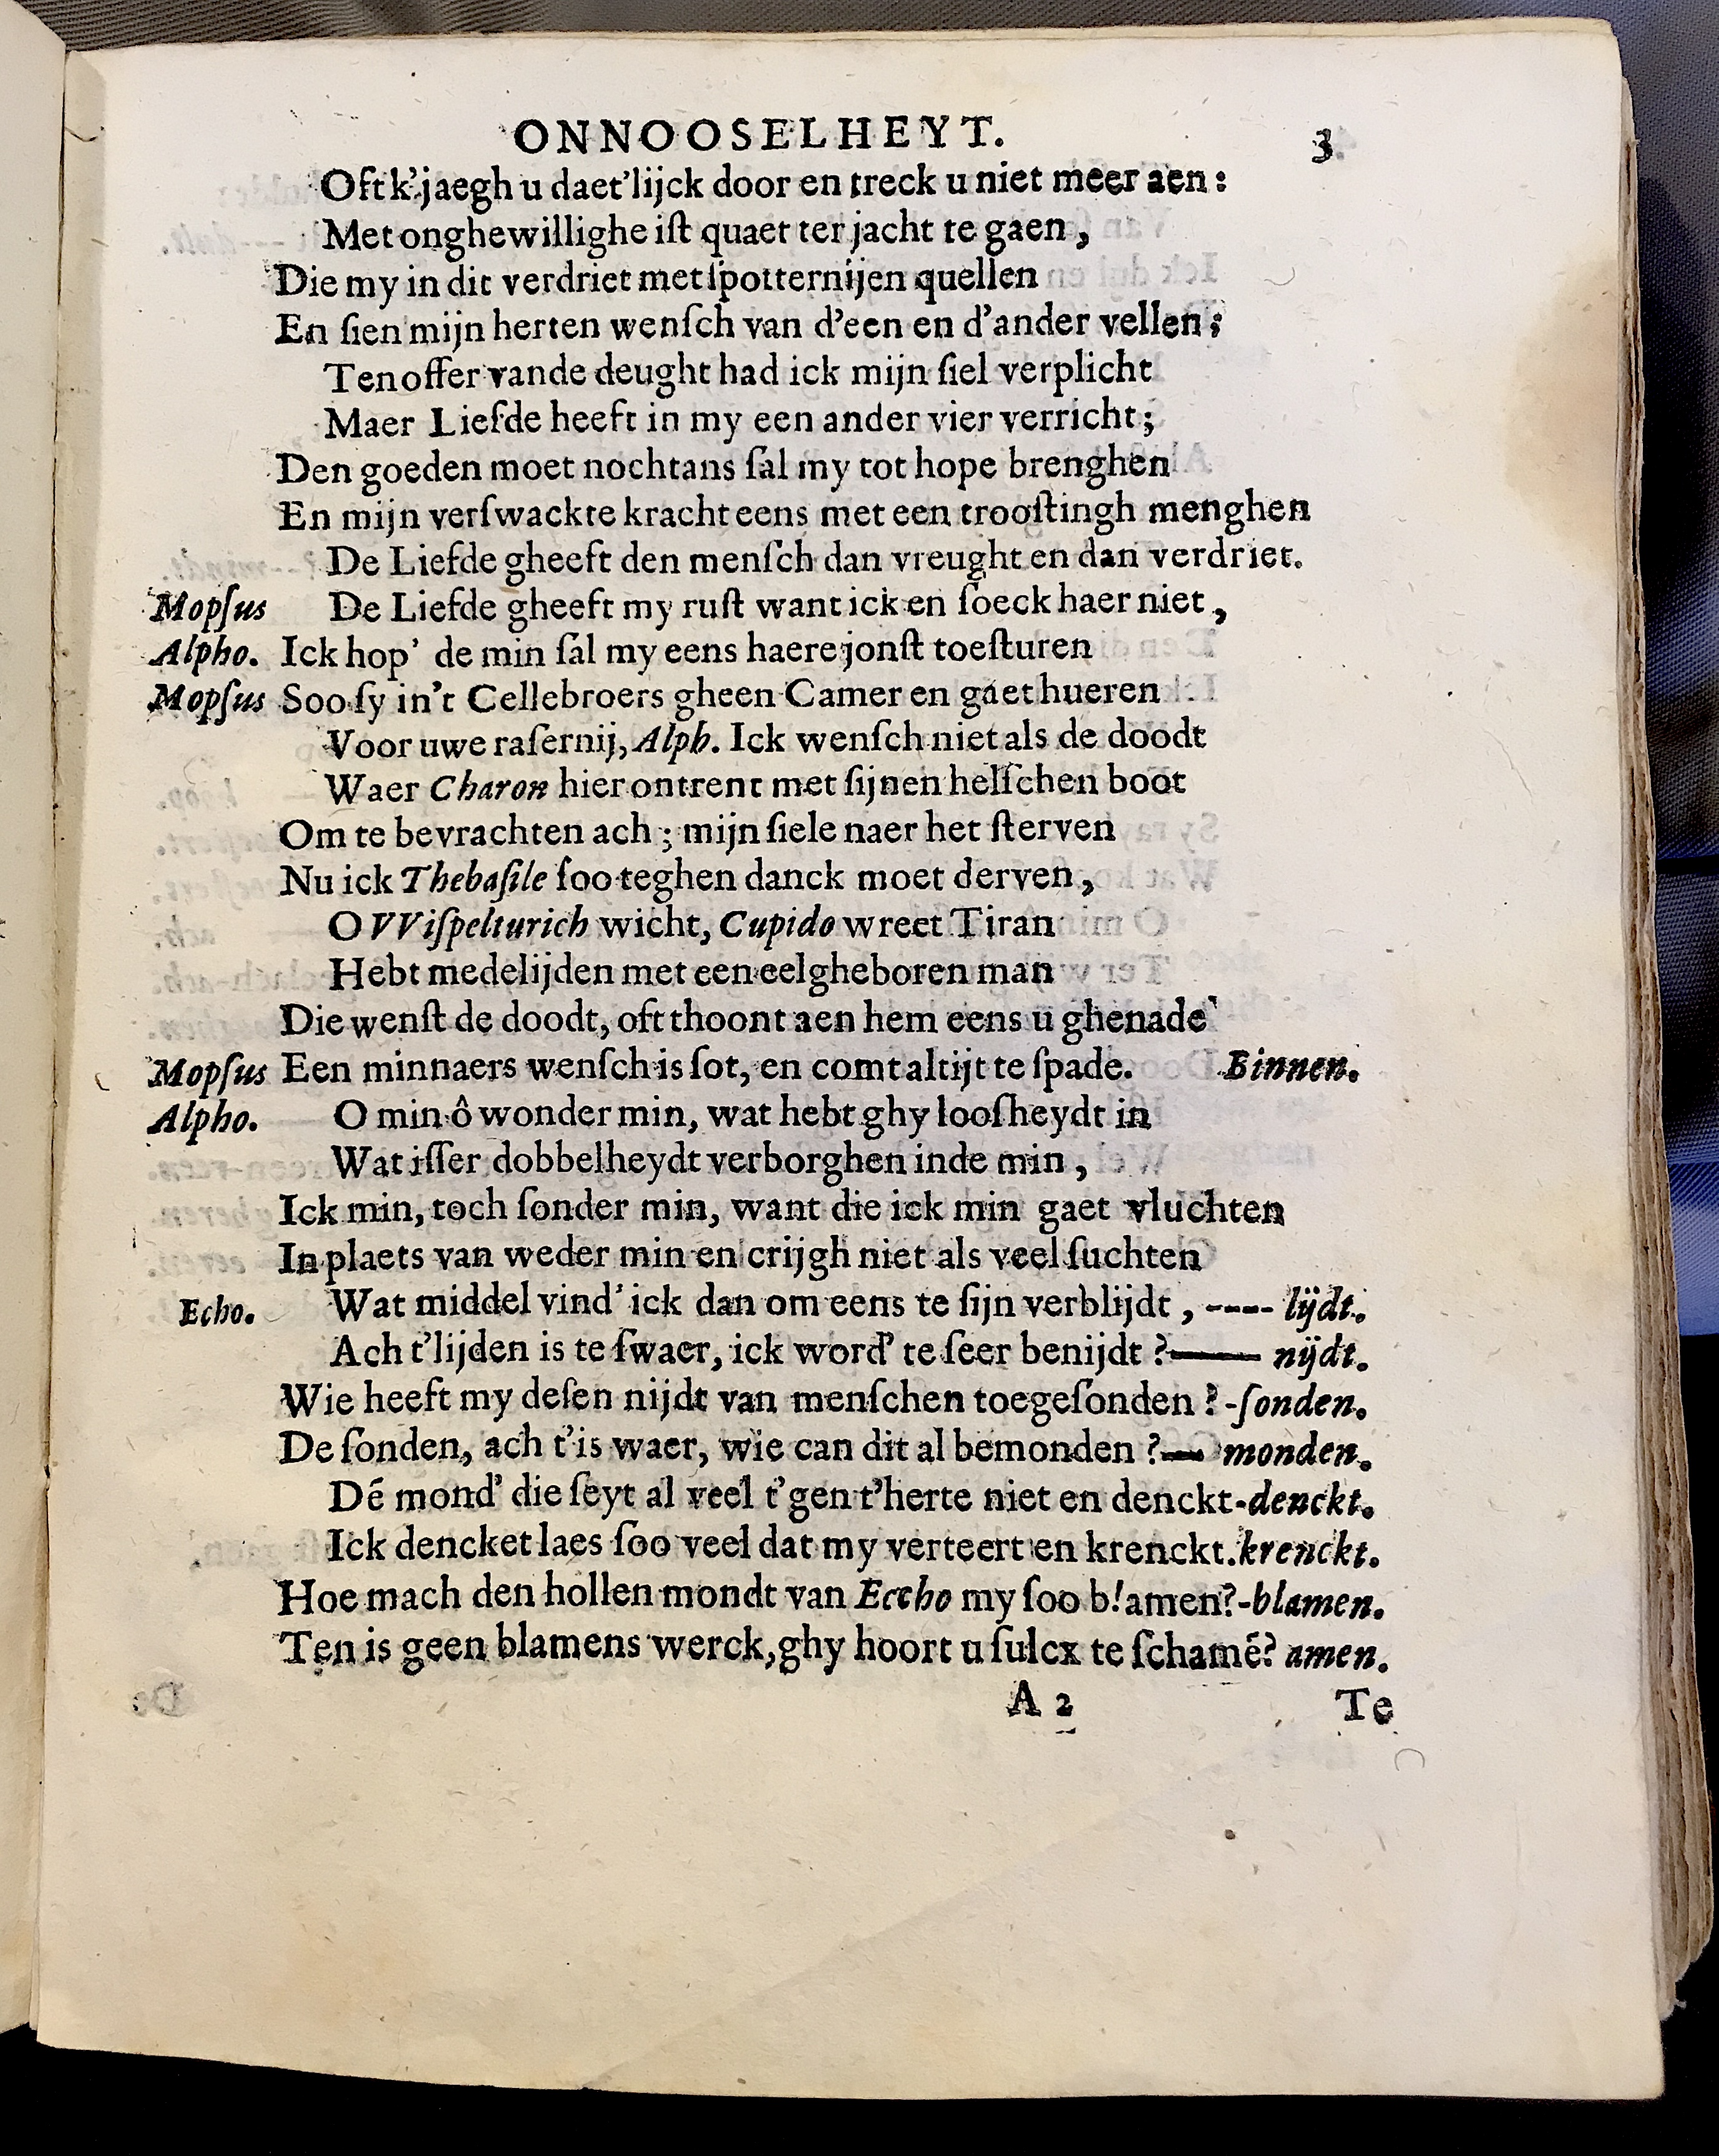 ONNOOSELHEYT. 3
Oft k'jaegh u daet'lijck door en treck u niet meer aen:
Met onghewillighe iſt quaet ter jacht te gaen,
Die my in dit verdriet met ſpotternijen quellen
En ſien mijn herten wenſch van d'een en d'ander vellen;
Ten offer vande deught had ick mijn ſiel verplicht
Maer Liefde heeft in my een ander vier verricht;
Den goeden moet nochtans ſal my tot hope brenghen
En mijn verſwackte kracht eens met een trooſtingh menghen
De Liefde gheeft den menſch dan vreught en dan verdriet.
Mopſus De Liefde gheeft my ruſt want ick en ſoeck haer niet,
Alpho. Ick hop' de min ſal my eens haere jonſt toeſturen
Mopſus Soo ſy in't Cellebroers gheen Camer en gaet hueren
Voor uwe raſernij, Alph. Ick wenſch niet als de doodt
Waer Charon hier ontrent met ſijnen helſchen boot
Om te bevrachten ach; mijn ſiele naer het ſterven
Nu ick Thebaſile ſoo teghen danck moet derven,
O VViſpelturich wicht, Cupido wreet Tiran
Hebt medelijden met een eelgheboren man
Die wenſt de doodt, oft thoont aen hem eens u ghenade
Mopſus Een minnaers wenſch is ſot, en comt altijt te ſpade. Binnen.
Alpho. O min ô wonder min, wat hebt ghy looſheydt in
Wat iſſer dobbelheydt verborghen inde min,
Ick min, toch ſonder min, want die ick min gaet vluchten
In plaets van weder min en crijgh niet als veel ſuchten
Echo. Wat middel vind' ick dan om eens te ſijn verblijdt, ---- lijdt.
Ach t'lijden is te ſwaer, ick word' te ſeer benijdt ?—— nijdt.
Wie heeft my deſen nijdt van menſchen toegeſonden ? -ſonden.
De ſonden, ach t'is waer, wie can dit al bemonden ?— monden.
Dē mond' die ſeyt al veel t'gen t'herte niet en denckt-denckt.
Ick dencket laes ſoo veel dat my verteert en krenckt.krenckt.
Hoe mach den hollen mondt van Eccho my ſoo b!amen?-blamen.
Ten is geen blamens werck, ghy hoort u ſulcx te ſchamē? amen.
A 2 Te